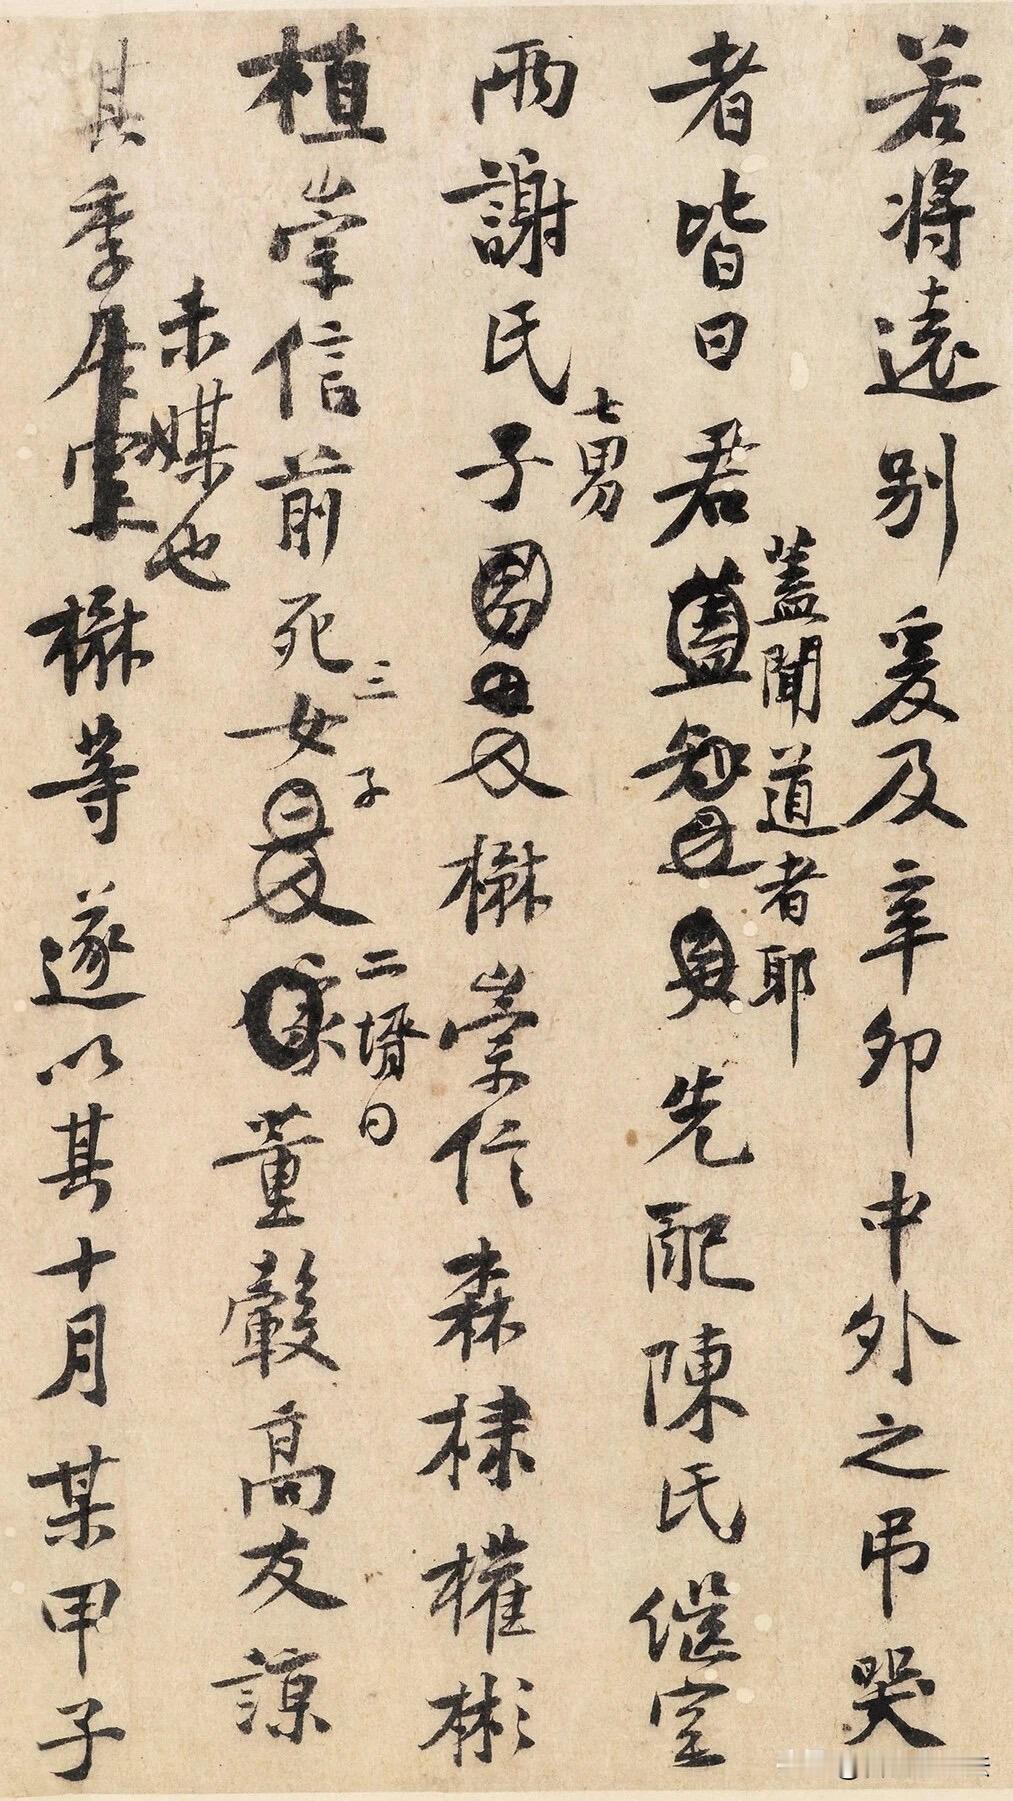 若將遠別爰及辛卯中外之弔哭
蓋聞道者耶
者皆曰君蓋知其先配陳氏繼室
七男
兩謝氏子男曰及楙崇信森棣權彬
三子
二壻曰
植崇信前死女二及董轂高友諒
未媒也
其季在室楙等遂以其十月某甲子